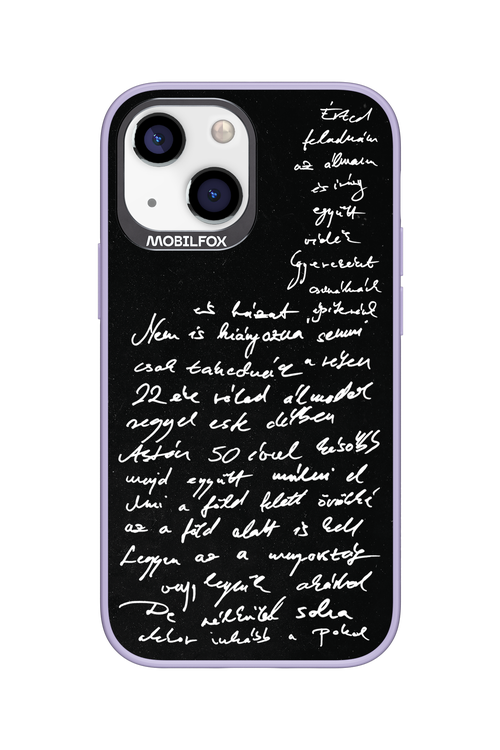 MOBILFOX
Érted
feladnám
az álmaim
és irány
együtt
vidék
Gyerekeket
csinálnánk
és házat építenék
Nem is hiányozna semmi
csak takednák a réten
22 éve rólad álmodok
reggel este délben
Aztán 50 évvel később
majd együtt múlni el
Ami a föld felett örökké
az a föld alatt is kell
Legyen az a mennyország
vagy legyünk akárhol
De nélküled soha
akkor inkább a pokol